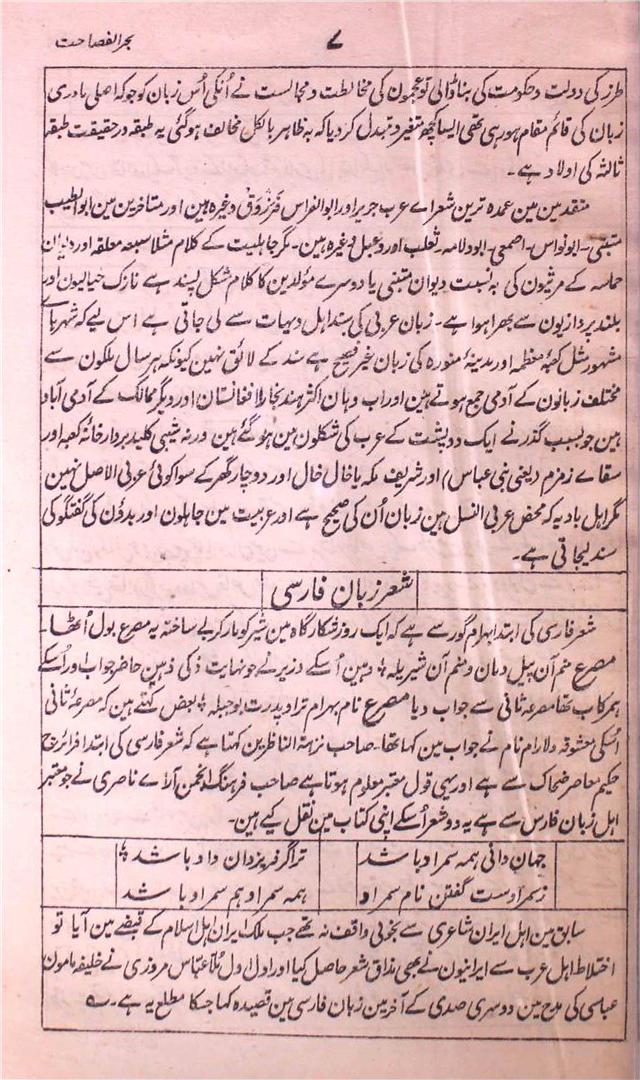 بحر الفصاحت
۷
طرز کی دولت و حکومت کی بنا ڈالی تو عجمون کی مخالطت و مجالست نے اُنکی اُس زبان کو جو کہ اصلی مادری
زبان کی قائم مقام ہو رہی تھی ایسا کچھ متغیر و تبدل کر دیا کہ بہ ظاہر بالکل مخالف ہو گئی یہ طبقہ در حقیقت طبقہ
ثالثہ کی اولاد ہے۔
متقدمین مین عمدہ ترین شعراے عرب جریر اور ابو الفراس فَرَزْدَق وغیرہ ہین اور متاخرین مین ابو الطیب
متنبی۔ ابو نواس۔ اصمعی۔ ابو دلامہ۔ ثعلب اور دعبل وغیرہ ہین۔ مگر جاہلیت کے کلام مثلا سبعہ معلقہ اور دیوان
حماسہ کے مرثیون کی بہ نسبت دیوان متنبی یا دوسرے مؤلدین کا کلام مشکل پسند ہے نازک خیالیون اور
بلند پردازیون سے بھرا ہوا ہے۔ زبان عربی کی سند اہل دیہات سے لی جاتی ہے اس لیے کہ شہرہاے
مشہور مثل مکۂ معظمہ اور مدینۂ منورہ کی زبان غیر فصیح ہے سند کے لائق نہین کیونکہ ہر سال ملکون سے
مختلف زبانون کے آدمی جمع ہوتے ہین اور اب وہان اکثر ہند بخارا افغانستان اور دیگر ممالک کے آدمی آباد
ہین جو بسبب گذرنے ایک دو پشت کے عرب کی شکلون مین ہو گئے ہین ورنہ شیبی کلید بردار خانۂ کعبہ اور
سقاے زمزم (یعنی بنی عباس) اور شریف مکہ یا خال خال اور دو چار گھر کے سوا کوئی عربی الاصل نہین
مگر اہل بادیہ کہ محض عربی النسل ہین زبان اُن کی صحیح ہے اور عربیت مین جاہلون اور بدؤن کی گفتگو کی
سند لیجاتی ہے۔
شعر زبان فارسی
شعر فارسی کی ابتدا بہرام گور سے ہے کہ ایک روز شکار گاہ مین شیر کو مار کر بے ساختہ یہ مصرع بول اُٹھا۔
مصرع منم آن پیل دمان و منم آن شیر یلہ ؛ وہین اُسکے وزیر نے جو نہایت ذکی ذہین حاضر جواب اور اُسکے
ہمرکاب تھا مصرعۂ ثانی سے جواب دیا مصرع نام بہرام ترا و پدرت بوجبلہ ؛ بعض کہتے ہین کہ مصرعۂ ثانی
اُسکی معشوقہ دلارام نام نے جواب مین کہا تھا۔ صاحب نزہۃ الناظرین کہتا ہے کہ شعر فارسی کی ابتدا فرائرج
حکیم معاصر ضحاک سے ہے اور یہی قول معتبر معلوم ہوتا ہے صاحب فرہنگ انجمن آراے ناصری نے جو معتبر
اہل زبان فارس سے ہے یہ دو شعر اُسکے اپنی کتاب مین نقل کیے ہین۔
جہان دانی ہمہ سمراد باشد تر اگر فرّ یزدان داد باشد ؛
ز سمراد ست گفتن نام سمراد ہمہ سمراد ہم سمراد باشد
سابق مین اہل ایران شاعری سے بخوبی واقف نہ تھے جب ملک ایران اہل اسلام کے قبضے مین آیا تو
اختلاط اہل عرب سے ایرانیون نے بھی مذاق شعر حاصل کیا اور اول اول ملا عباس مروزی نے خلیفہ مامون
عباسی کی مدح مین دوسری صدی کے آخر مین زبان فارسی مین قصیدہ کہا جسکا مطلع یہ ہے۔